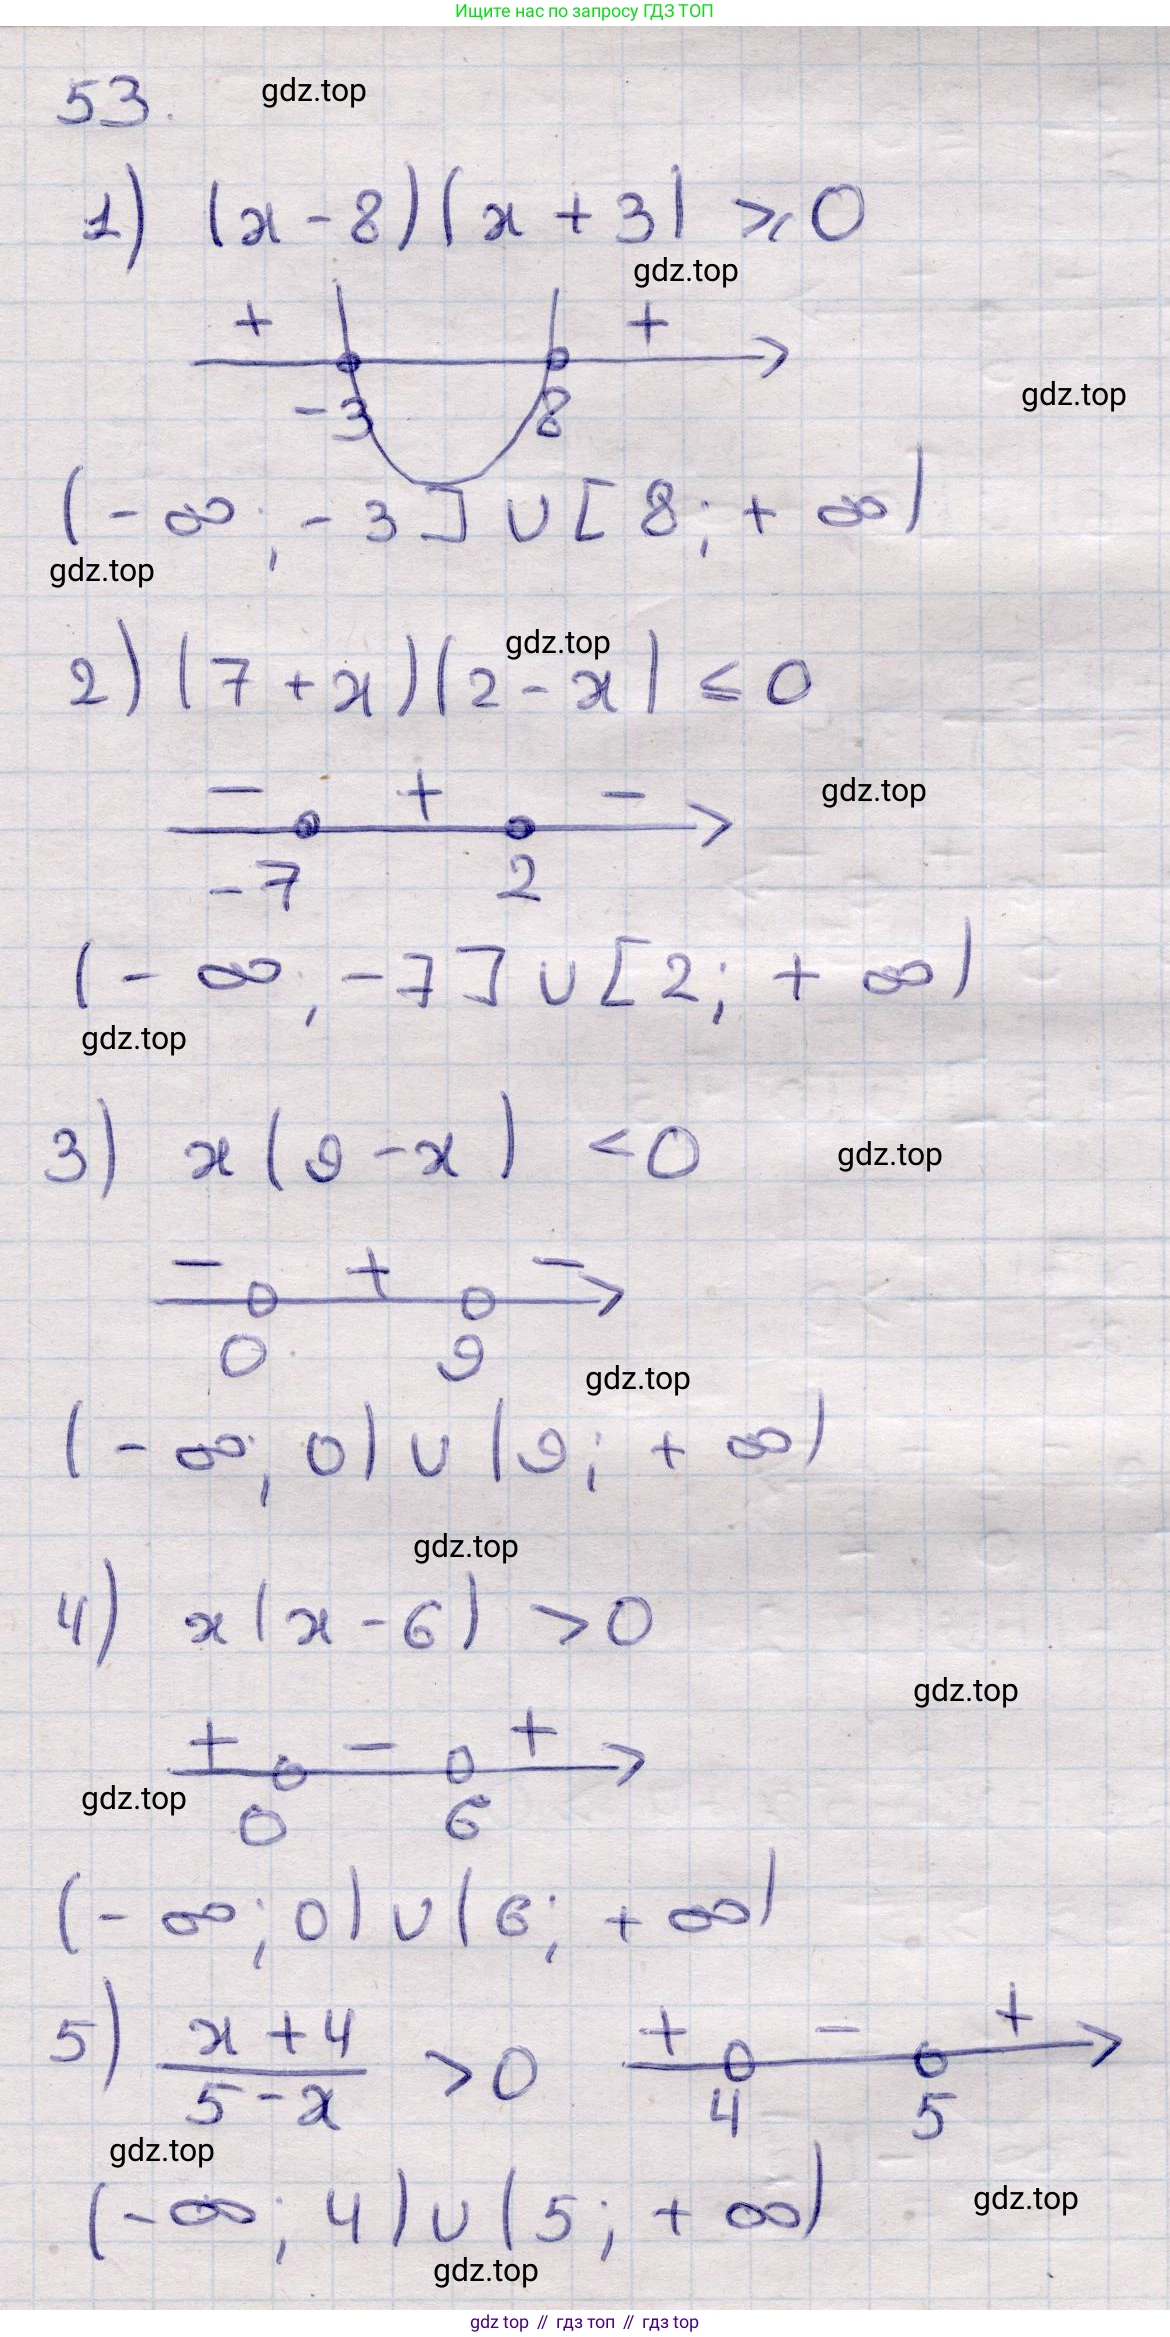 Ищите нас по запросу ГДЗ ТОП
53.
gdz.top
1) (x - 8)(x + 3) ⩾ 0
gdz.top
+ +
-3 8
gdz.top
(-∞; -3] ∪ [8; +∞)
gdz.top
gdz.top
2) (7 + x)(2 - x) ≤ 0
- + -
gdz.top
-7 2
(-∞; -7] ∪ [2; +∞)
gdz.top
3) x(9 - x) < 0
gdz.top
- + -
0 9
gdz.top
(-∞; 0) ∪ (9; +∞)
gdz.top
4) x(x - 6) > 0
gdz.top
+ - +
gdz.top
0 6
(-∞; 0) ∪ (6; +∞)
5) x + 4 / 5 - x > 0
+ - +
4 5
gdz.top
(-∞; 4) ∪ (5; +∞)
gdz.top
gdz.top
gdz top // гдз топ // гдз top